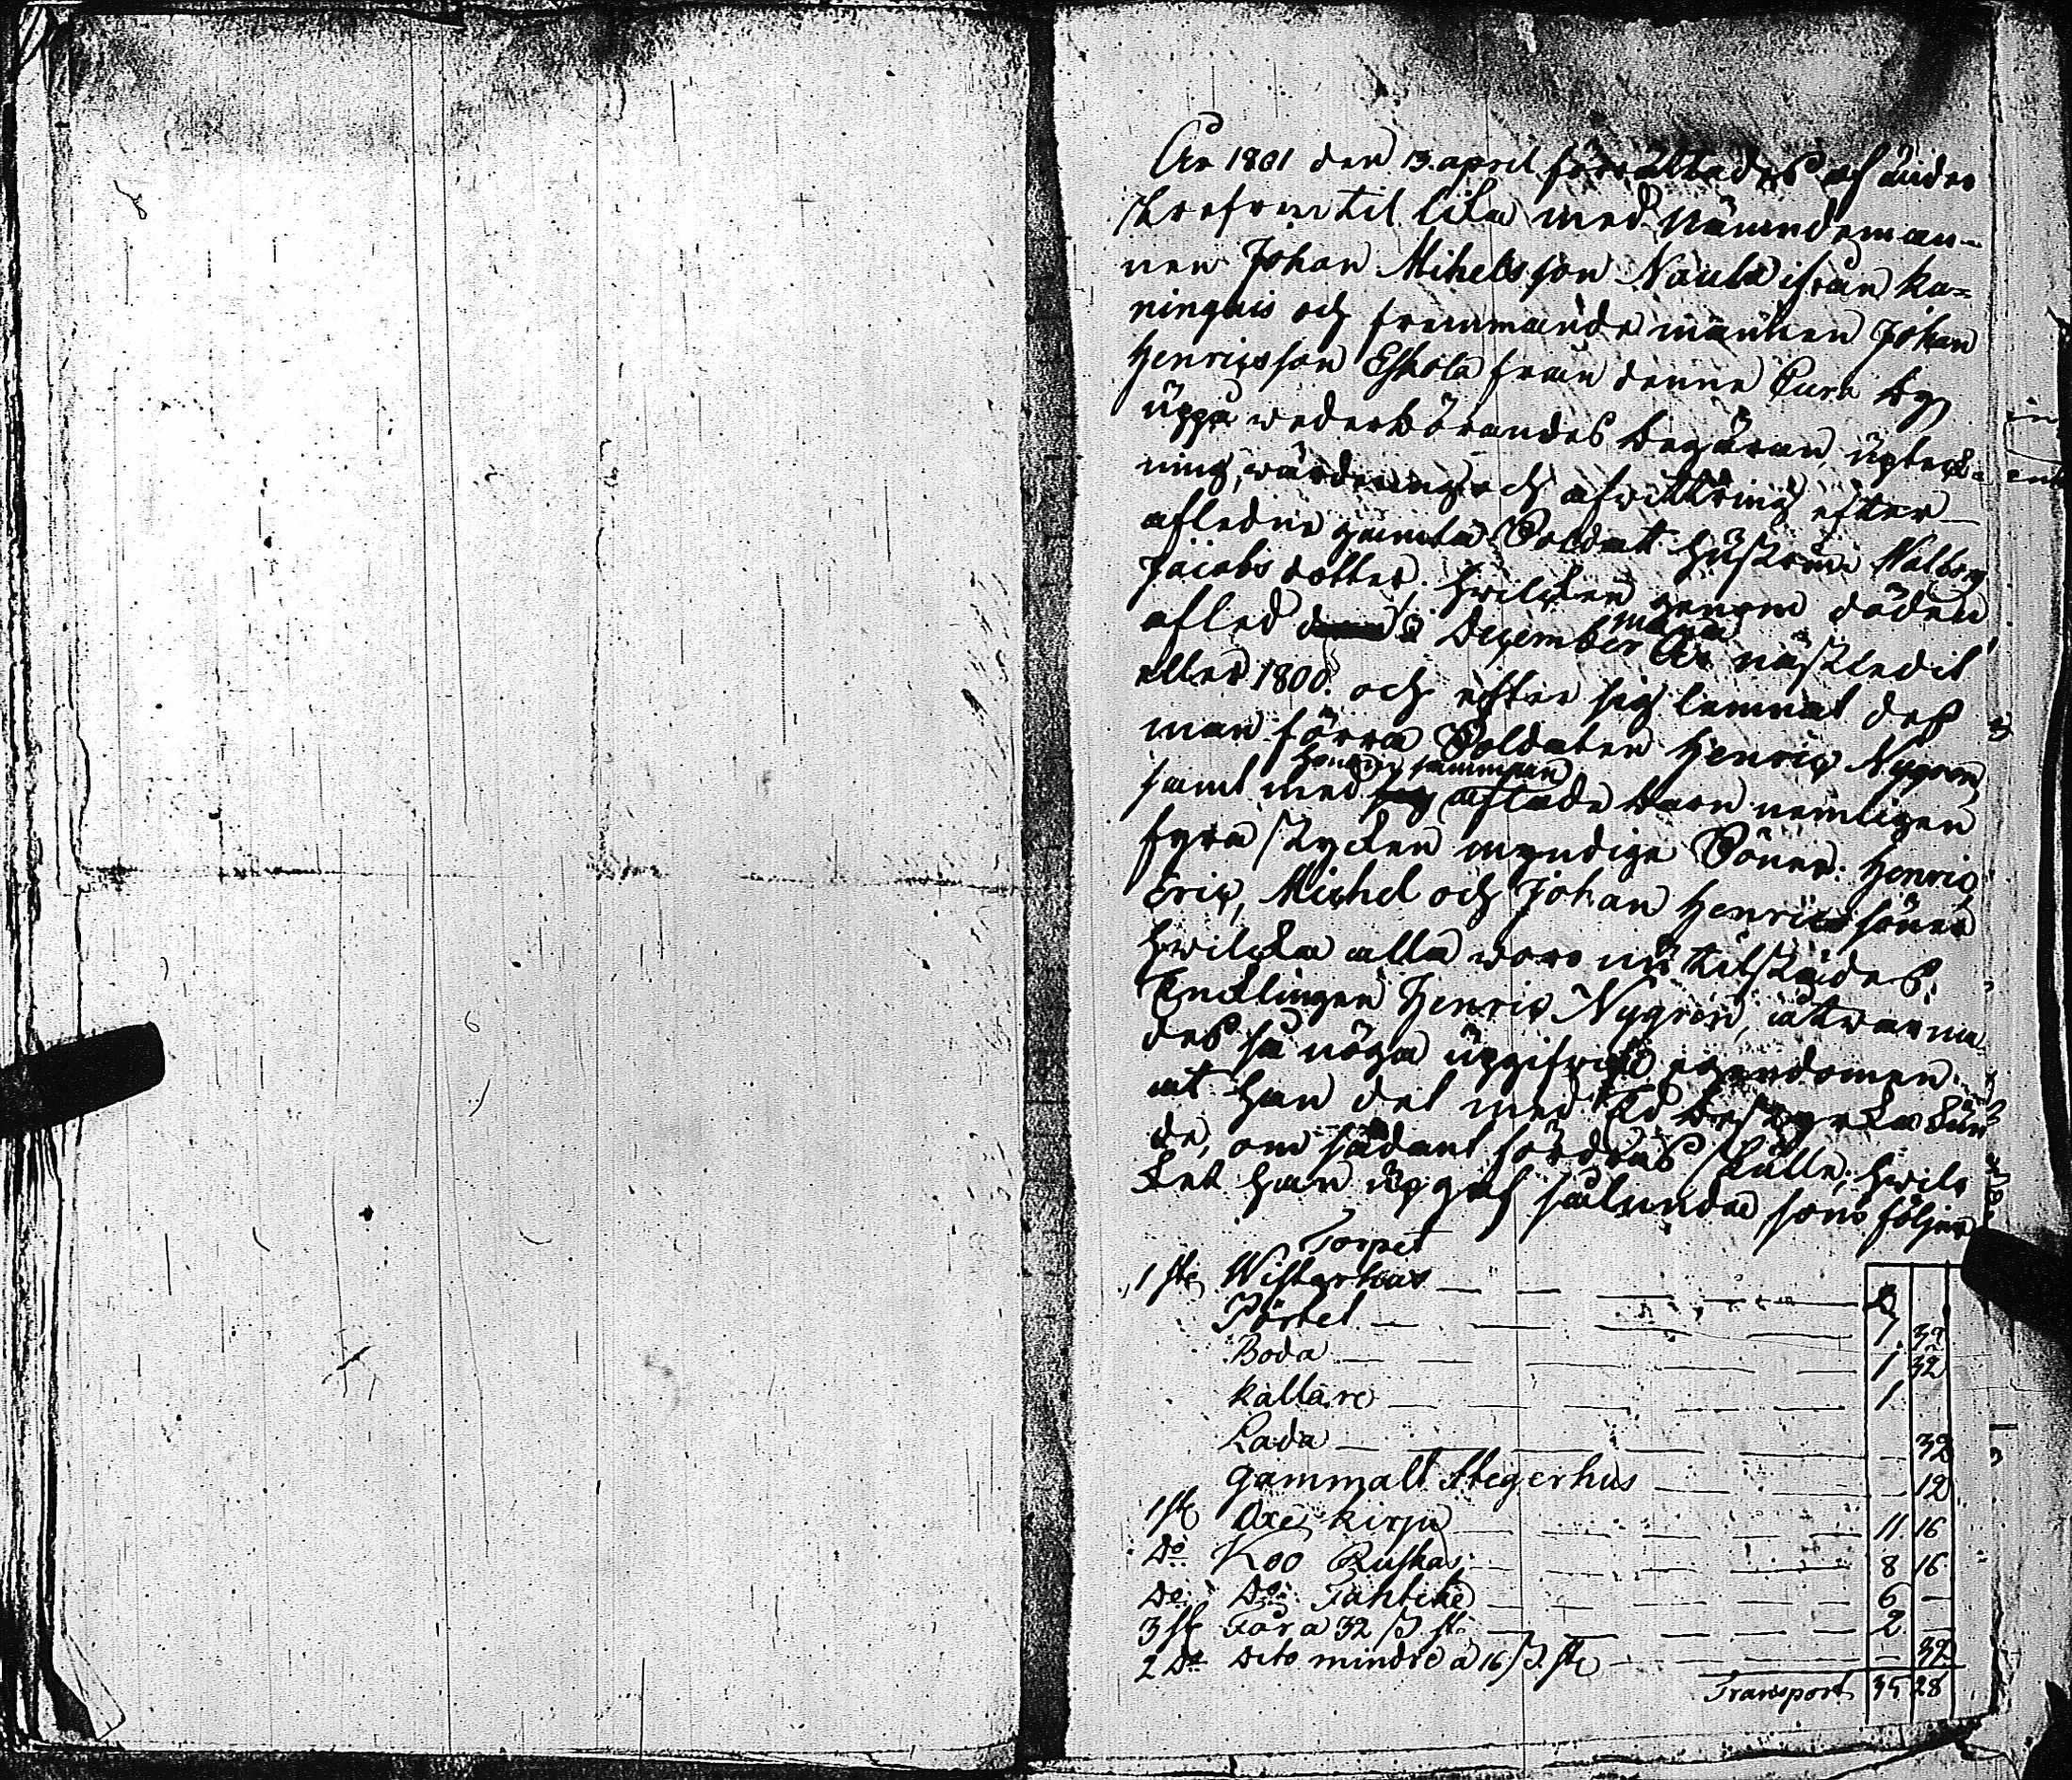 År 1801 den 13. april förrättades af under
skrefven til lika med Nämndeman-
nen Johan Mihelsson Naula ifrån Ka-
ningais och fremmande mannen Johan
Henricsson Eskola från denne Eura by
uppå wederbörandes begäran, upteck-
ning, wärdering och afwittring efter
afledne gamla Soldatt hustrun Walborg
Jacobs dotter, hwilken genom döden
afled i December månad År nästledit
eller 1800. och efter sig lemnat des
man förra Soldaten Henric Nygren
samt med honom samman aflade barn nemligen
fyra stycken myndige Söner: Henric,
Eric, Michel och Johan Henrics söner
hwilcka alla woro nu tilstädes.
Enklingen Henric Nygren, åtwarna-
des så nöga uppgifva egendomen
at han det med Ed bestyrka kun
de, om sådant fördras skulle, hwil-
ket han upgaf sålunda som följer
Torpet
1 st Wistarhus
Pörtet 1 32
Boda 1 32
Kallare 1
Lada 32
Gammalt Stegerhus 12
1 st Oxe Kirju 11 16
Do Koo Ruska 8 16
Do Do Tähticke 6 —
3 st Får a 32 s. st 2 —
2 Do Dito mindre a 16 s. st 32
Transport 35 28